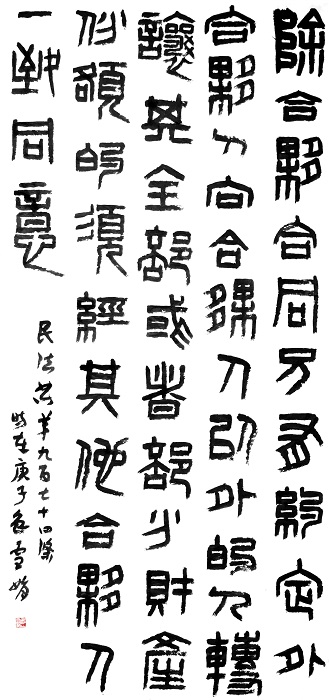 除合夥合同另有約定外
合夥人向合夥人以外的人轉
讓其全部或者部分財產
份額的須經其他合夥人
一致同意
民法典第九百七十四條
時在庚子雪